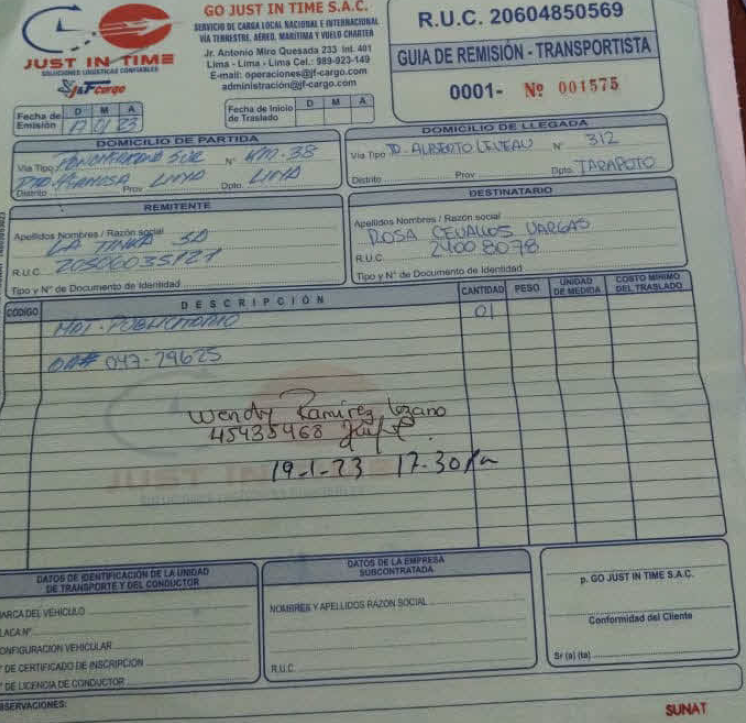 GO JUST IN TIME S.A.C.
SERVICIO DE CARGA LOCAL NACIONAL E INTERNACIONAL
VIA TERRESTRE, AEREO, MARITIMA Y VUELO CHARTER
Jr. Antonio Miro Quesada 233 Int. 401
Lima - Lima - Lima Cel.: 989-923-149
E-mail: operaciones@jf-cargo.com
administración@jf-cargo.com
JUST IN TIME
SOLUCIONES LOGISTICAS CONFIABLES
J&F Cargo
R.U.C. 20604850569
GUIA DE REMISIÓN - TRANSPORTISTA
0001- Nº 001575
Fecha de Emisión
D M A
17 01 23
Fecha de Inicio de Traslado
D M A
DOMICILIO DE PARTIDA
Via Tipo PANAMERICANA SUR Nº KM. 38
Distrito PTA. HERMOSA Prov LIMA Dpto. LIMA
DOMICILIO DE LLEGADA
Via Tipo JR. ALBERTO LEVEAU Nº 312
Distrito Prov Dpto. TARAPOTO
REMITENTE
Apellidos Nombres / Razón social
LA TINKA SA
R.U.C. 20506035121
Tipo y N° de Documento de Identidad
DESTINATARIO
Apellidos Nombres / Razón social
ROSA CEVALLOS VARGAS
R.U.C. 24008078
Tipo y N° de Documento de Identidad
CODIGO DESCRIPCIÓN CANTIDAD PESO UNIDAD DE MEDIDA COSTO MINIMO DEL TRASLADO
MAT. PUBLICITARIO 01
047-29625
Wendy Ramirez Lozano
45435468
19-1-23 17:30
JUST IN TIME
DATOS DE IDENTIFICACIÓN DE LA UNIDAD
DE TRANSPORTE Y DEL CONDUCTOR
MARCA DEL VEHICULO
PLACA N°
CONFIGURACION VEHICULAR
N° DE CERTIFICADO DE INSCRIPCIÓN
N° DE LICENCIA DE CONDUCTOR
DATOS DE LA EMPRESA
SUBCONTRATADA
NOMBRES Y APELLIDOS RAZON SOCIAL
R.U.C.
p. GO JUST IN TIME S.A.C.
Conformidad del Cliente
Sr (a) (ta)
OBSERVACIONES:
SUNAT